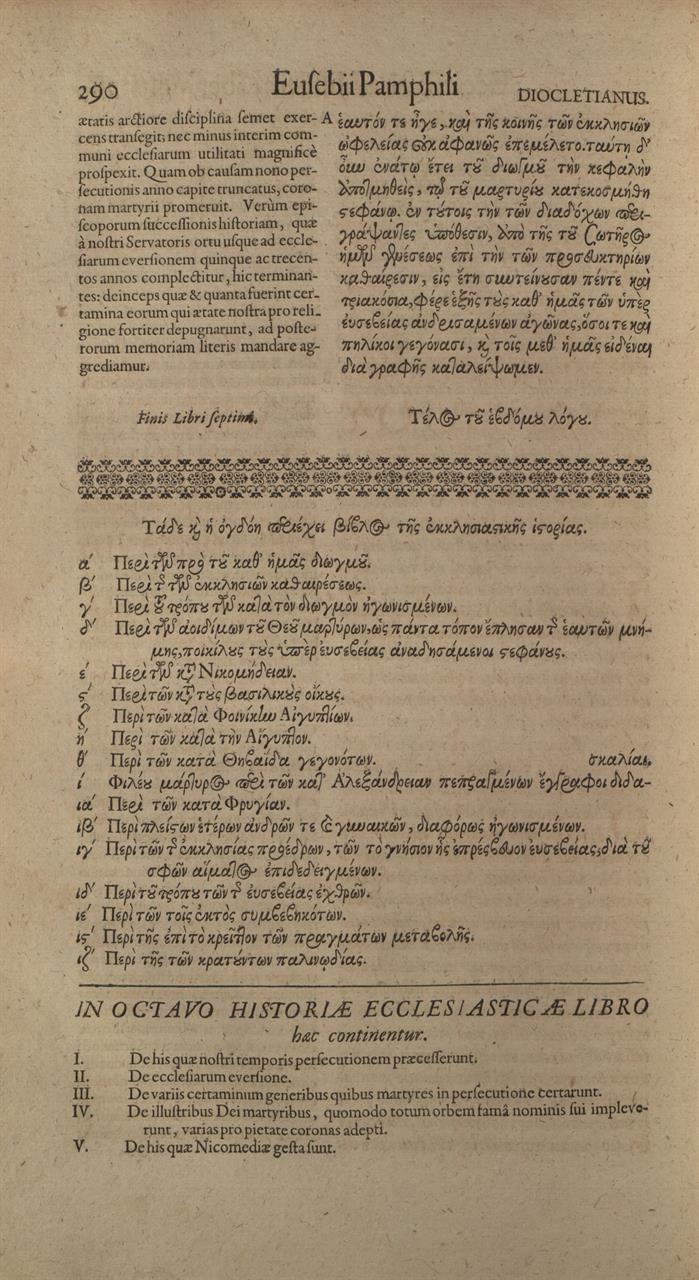 290 Eusebii Pamphili DIOCLETIANUS.
ætatis arctiore disciplina semet exer-
cens transegit: nec minus interim com-
muni ecclesiarum utilitati magnificè
prospexit. Quam ob causam nono per-
secutionis anno capite truncatus, coro-
nam martyrii promeruit. Verùm epi-
scoporum successionis historiam, quæ
à nostri Servatoris ortu usque ad eccle-
siarum eversionem quinque ac trecen-
tos annos complectitur, hic terminan-
tes: deinceps quæ & quanta fuerint cer-
tamina eorum qui ætate nostra pro reli-
gione fortiter depugnarunt, ad poste-
rorum memoriam literis mandare ag-
grediamur.
Finis Libri septimi.
A ἑαυτόν τε ἦγε, καὶ τῆς κοινῆς τῶν ἐκκλησιῶν
ὠφελείας οὐκ ἀφανῶς ἐπεμέλετο. ταύτῃ δ'
οὖν ἐνάτῳ ἔτει τοῦ διωγμοῦ τὴν κεφαλὴν
ἀποτμηθεὶς, τῷ τοῦ μαρτυρίου κατεκοσμήθη
στεφάνῳ. ἐν τούτοις τὴν τῶν διαδόχων περι-
γράψαντες ὑπόθεσιν, ἀπὸ τῆς τοῦ Σωτῆρος
ἡμῶν γενέσεως ἐπὶ τὴν τῶν προσευκτηρίων
καθαίρεσιν, εἰς ἔτη συντείνουσαν πέντε καὶ
τριακόσια, φέρε ἑξῆς τοὺς καθ' ἡμᾶς τῶν ὑπὲρ
εὐσεβείας ἀνδρισαμένων ἀγῶνας, ὅσοι τε καὶ
πηλίκοι γεγόνασι, καὶ τοῖς μεθ' ἡμᾶς εἰδέναι
διὰ γραφῆς καταλείψωμεν.
Τέλος τοῦ ἑβδόμου λόγου.
Τάδε καὶ ἡ ὀγδόη περιέχει βίβλος τῆς ἐκκλησιαστικῆς ἱστορίας.
α' Περὶ τῶν πρὸ τοῦ καθ' ἡμᾶς διωγμοῦ.
β' Περὶ τῆς τῶν ἐκκλησιῶν καθαιρέσεως.
γ' Περὶ τοῦ τρόπου τῶν κατὰ τὸν διωγμὸν ἠγωνισμένων.
δ' Περὶ τῶν ἀοιδίμων τοῦ Θεοῦ μαρτύρων, ὡς πάντα τόπον ἔπλησαν τῆς ἑαυτῶν μνή-
μης, ποικίλους τοὺς ὑπὲρ εὐσεβείας ἀναδησάμενοι στεφάνους.
ε' Περὶ τῶν κατὰ Νικομήδειαν.
ς' Περὶ τῶν κατὰ τοὺς βασιλικοὺς οἴκους.
ζ' Περὶ τῶν κατὰ Φοινίκην Αἰγυπτίων.
η' Περὶ τῶν κατὰ τὴν Αἴγυπτον.
θ' Περὶ τῶν κατὰ Θηβαίδα γεγονότων. σκαλίαι.
ι' Φιλέου μάρτυρος περὶ τῶν κατ' Αλεξάνδρειαν πεπραγμένων ἔγγραφοι διδα-
ια' Περὶ τῶν κατὰ Φρυγίαν.
ιβ' Περὶ πλείστων ἑτέρων ἀνδρῶν τε καὶ γυναικῶν, διαφόρως ἠγωνισμένων.
ιγ' Περὶ τῶν τῆς ἐκκλησίας προέδρων, τῶν τὸ γνήσιον ἧς ἐπρέσβευον εὐσεβείας, διὰ τοῦ
σφῶν αἵματος ἐπιδεδειγμένων.
ιδ' Περὶ τοῦ τρόπου τῶν τῆς εὐσεβείας ἐχθρῶν.
ιε' Περὶ τῶν τοῖς ἐκτὸς συμβεβηκότων.
ις' Περὶ τῆς ἐπὶ τὸ κρεῖττον τῶν πραγμάτων μεταβολῆς.
ιζ' Περὶ τῆς τῶν κρατούντων παλινωδίας.
IN OCTAVO HISTORIÆ ECCLESIASTICÆ LIBRO
hæc continentur.
I. De his quæ nostri temporis persecutionem præcesserunt.
II. De ecclesiarum eversione.
III. De variis certaminum generibus quibus martyres in persecutione certarunt.
IV. De illustribus Dei martyribus, quomodo totum orbem famâ nominis sui impleve-
runt, varias pro pietate coronas adepti.
V. De his quæ Nicomediæ gesta sunt.